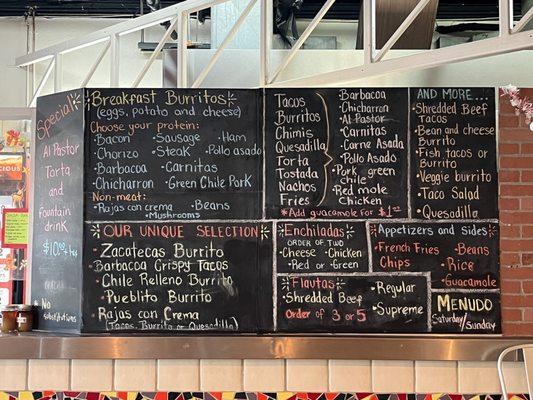 Special
Al Pastor
Torta
and
fountain
drink
$10.00 + tax
No
substitutions
Breakfast Burritos
(eggs, potato and cheese)
Choose your protein:
•Bacon •Sausage •Ham
•Chorizo •Steak •Pollo asado
•Barbacoa •Carnitas
•Chicharron •Green Chile Pork
Non-meat:
•Rajas con crema •Beans
•Mushrooms
Our Unique Selection
Zacatecas Burrito
•Barbacoa Crispy Tacos
Chile Relleno Burrito
•Pueblito Burrito
Rajas con Crema
(Tacos, Burrito or Quesadilla)
Tacos
Burritos
Chimis
Quesadilla
Torta
Tostada
Nachos
Fries
•Barbacoa
•Chicharron
•Al Pastor
•Carnitas
•Carne Asada
•Pollo Asado
•Pork green
chile
•Red mole
Chicken
*Add guacamole for $1*
And more...
•Shredded Beef
Tacos
•Bean and cheese
Burrito
•Fish tacos or
burrito
•Veggie burrito
•Taco Salad
•Quesadilla
Enchiladas
order of two
•Cheese •Chicken
•Red or Green
Appetizers and sides
•French Fries •Beans
Chips •Rice
•Guacamole
Flautas
•Shredded Beef
Order of 3 or 5
•Regular
•Supreme
Menudo
Saturday/Sunday